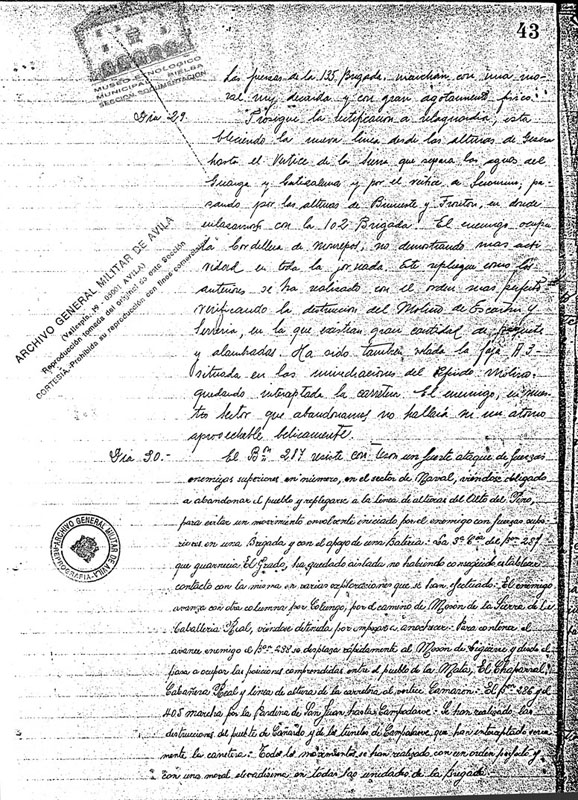 43
MUSEO ETNOLOGICO
MUNICIPAL BIELSA
SECCION DOCUMENTACION
Las fuerzas de la 135 Brigada, marchan con una mo-
ral muy decaida y con gran agotamiento fisico.
Dia 29. Prosigue la rectificacion a retaguardia, esta
bleciendo la nueva linea desde las alturas de
hasta el Vertice de la Sierra que separa las aguas del
Guarga y y por el vertice de pa-
sando por las alturas de y en donde
enlazamos con la 102 Brigada. El enemigo ocupa
la Cordillera de Monrepos, no demostrando mas acti
vidad en toda la jornada. Este repliegue como los
anteriores se ha realizado con el orden mas perfecto
verificando la destruccion del Molino de Escartin y
Serreria, en la que existian gran cantidad de
y alambradas. Ha sido tambien volada la A-3-
situada en las inmediaciones del Molino
quedando interceptada la carretera. El enemigo, en nues
tro sector que abandonamos no hallará ni un atomo
aprovechable belicamente.
Dia 30.- El Bon 287 resiste con teson un fuerte ataque de fuerzas
enemigas superiores en número, en el sector de Naval, viendose obligado
a abandonar el pueblo y replegarse a la linea de alturas del Alto del Pino,
para evitar un movimiento envolvente iniciado por el enemigo con fuerzas supe-
riores en una Brigada y con el apoyo de una Bateria.- La 3ª Cia del Bon 287
que guarnecia El Grado, ha quedado aislada no habiendo conseguido establecer
contacto con la misma en varias exploraciones que se han efectuado.- El enemigo
avanza con otra columna por Colungo, por el camino de Meson de la Sierra de la
Caballeria Real, viendose detenida por anochecer.- Para contener el
avance enemigo el Bon 288 se desplaza rápidamente al Meson de y desde él
pasa a ocupar las posiciones comprendidas entre el pueblo de la Mata, El Chaparral,
Cabañera Real y linea de alturas de la carretera al vertice Camaron.- El Bon 236 y el
405 marcha por la Pardina de San Juan hasta Campodarve.- Se han realizado las
destrucciones del puente de y de los tuneles de Campodarve, que han interceptado seria
mente la carretera.- Todos los movimientos se han realizado con un orden perfecto y
con una moral elevadisima en todas las unidades de la Brigada
ARCHIVO GENERAL MILITAR DE AVILA
(Vallespin, 19 - 05001 AVILA)
Reproducción tomada del original de esta Sección
CORTESIA.-Prohibida su reproducción con fines comerciales
ARCHIVO GENERAL MILITAR DE AVILA
REPROGRAFIA